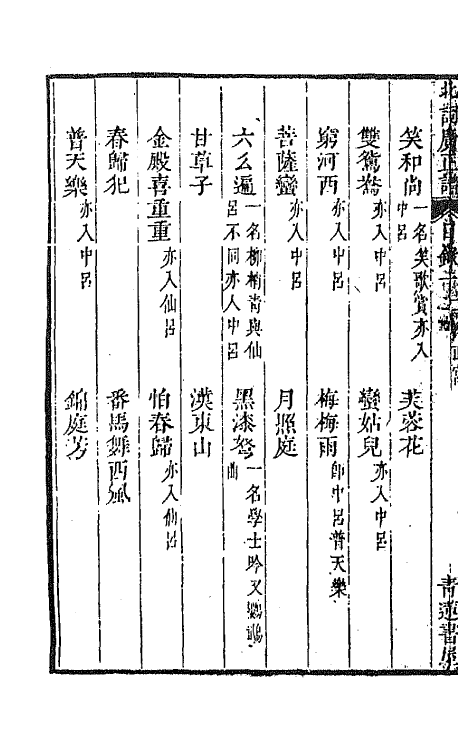 北詞廣正譜 目錄 正宮
青蓮書屋
笑和尚 一名笑歌賞亦入中呂 芙蓉花
雙鴛鴦 亦入中呂 蠻姑兒 亦入中呂
窮河西 亦入中呂 梅梅雨 卽中呂普天樂
菩薩蠻 亦入中呂 月照庭
六么遍 一名柳梢靑與仙呂不同亦入中呂 黑漆弩 一名學士吟又鸚鵡曲
甘草子 漢東山
金殿喜重重 亦入仙呂 怕春歸 亦入仙呂
春歸犯 番馬舞西風
普天樂 亦入中呂 錦庭芳